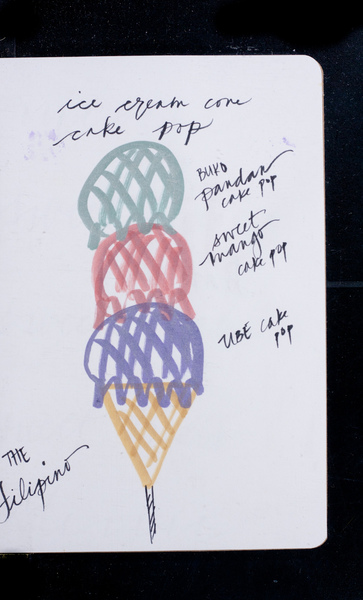 ice cream cone
cake pop
BUKO
pandan
cake pop
sweet
mango
cake pop
UBE cake
pop
THE
Filipino